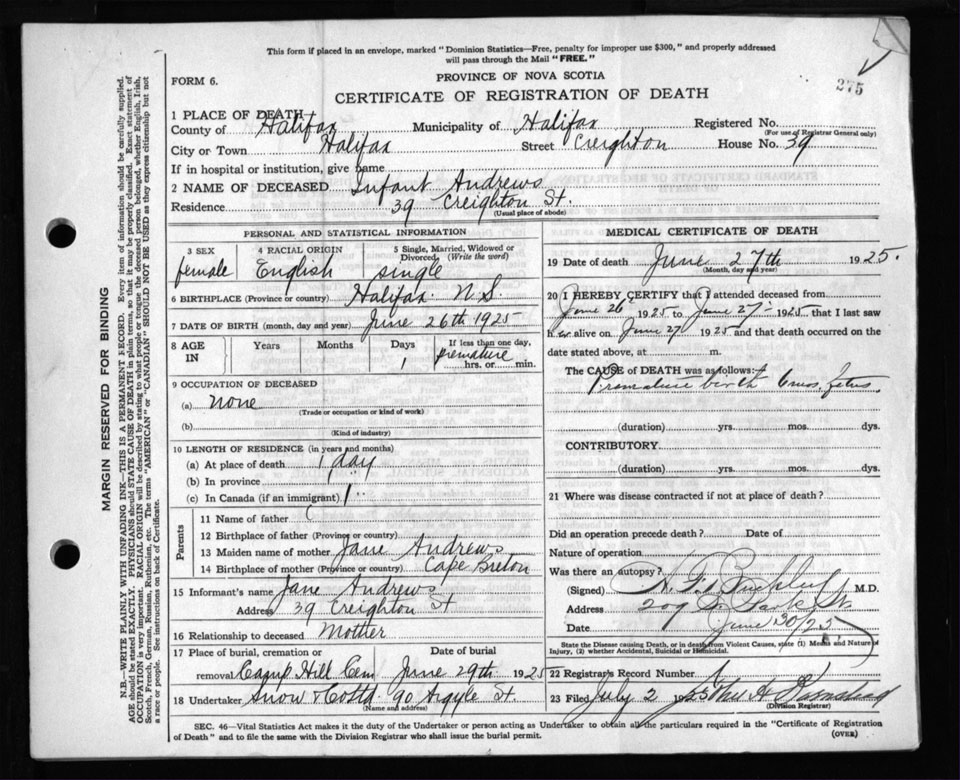 This form if placed in an envelope, marked "Dominion Statistics—Free, penalty for improper use $300," and properly addressed
will pass through the Mail "FREE."
FORM 6.
PROVINCE OF NOVA SCOTIA
275
CERTIFICATE OF REGISTRATION OF DEATH
1 PLACE OF DEATH
County of Halifax Municipality of Halifax Registered No.
(For use of Registrar General only)
City or Town Halifax Street Creighton House No. 39
If in hospital or institution, give name
2 NAME OF DECEASED Infant Andrews
Residence 39 Creighton St.
(Usual place of abode)
PERSONAL AND STATISTICAL INFORMATION
3 SEX 4 RACIAL ORIGIN 5 Single, Married, Widowed or
Divorced (Write the word)
female English single
6 BIRTHPLACE (Province or country) Halifax N.S.
7 DATE OF BIRTH (month, day and year) June 26th 1925
8 AGE IN Years Months Days If less than one day,
1 premature
hrs. or min.
9 OCCUPATION OF DECEASED
(a) none
(Trade or occupation or kind of work)
(b)
(Kind of industry)
10 LENGTH OF RESIDENCE (in years and months)
(a) At place of death 1 day
(b) In province
(c) In Canada (if an immigrant) 1 "
Parents
11 Name of father
12 Birthplace of father (Province or country)
13 Maiden name of mother Jane Andrews
14 Birthplace of mother (Province or country) Cape Breton
15 Informant's name Jane Andrews
Address 39 Creighton St
16 Relationship to deceased Mother
17 Place of burial, cremation or Date of burial
removal Camp Hill Cem June 29th 1925
18 Undertaker Snow & Co Ltd 90 Argyle St.
(Name and address)
MEDICAL CERTIFICATE OF DEATH
19 Date of death June 27th 1925.
(Month, day and year)
20 I HEREBY CERTIFY that I attended deceased from
June 26 1925 to June 27 1925 that I last saw
h er alive on June 27 1925 and that death occurred on the
date stated above, at m.
The CAUSE of DEATH was as follows:
Premature birth 6 mos fetus
(duration) yrs. mos. dys.
CONTRIBUTORY
(duration) yrs. mos. dys.
21 Where was disease contracted if not at place of death?
Did an operation precede death? Date of
Nature of operation
Was there an autopsy?
(Signed) M.D.
Address 209 Park St.
Date June 30/25
State the Disease causing Death, or in death from Violent Causes, state (1) Means and Nature of
Injury, (2) whether Accidental, Suicidal or Homicidal.
22 Registrar's Record No.
23 Filed July 2 1925
(Division Registrar)
SEC. 46—Vital Statistics Act makes it the duty of the Undertaker or person acting as Undertaker to obtain all the particulars required in the "Certificate of Registration
of Death" and to file the same with the Division Registrar who shall issue the burial permit.
(OVER)
MARGIN RESERVED FOR BINDING
N.B.—WRITE PLAINLY WITH UNFADING INK—THIS IS A PERMANENT RECORD. Every item of information should be carefully supplied.
AGE should be stated EXACTLY. PHYSICIANS should STATE CAUSE OF DEATH in plain terms, so that it may be properly classified. Exact statement of
OCCUPATION is very important. RACIAL ORIGIN will be described by stating to what people or tongue the deceased person belonged, whether English, Irish,
Scotch, French, German, Russian, Ruthenian, etc. The terms "AMERICAN" or "CANADIAN" SHOULD NOT BE USED as they express citizenship but not
a race or people. See instructions on back of Certificate.